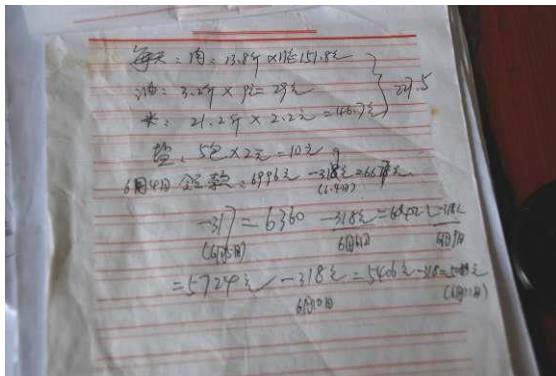 每天:肉:13.8斤×11元=151.8元
油:3.2斤×9元=29元 227.5
米:21.2斤×2.2元=46.7元
盐:5包×2元=10元
6月4日 余款:6996元-318元=6678元
(6.4日)
-317=6360-318元=6042元-318元
(6月5日) 6月6日 6月9日
=5724元-318元=5406元-318=5088元
6月10日 (6月11日)